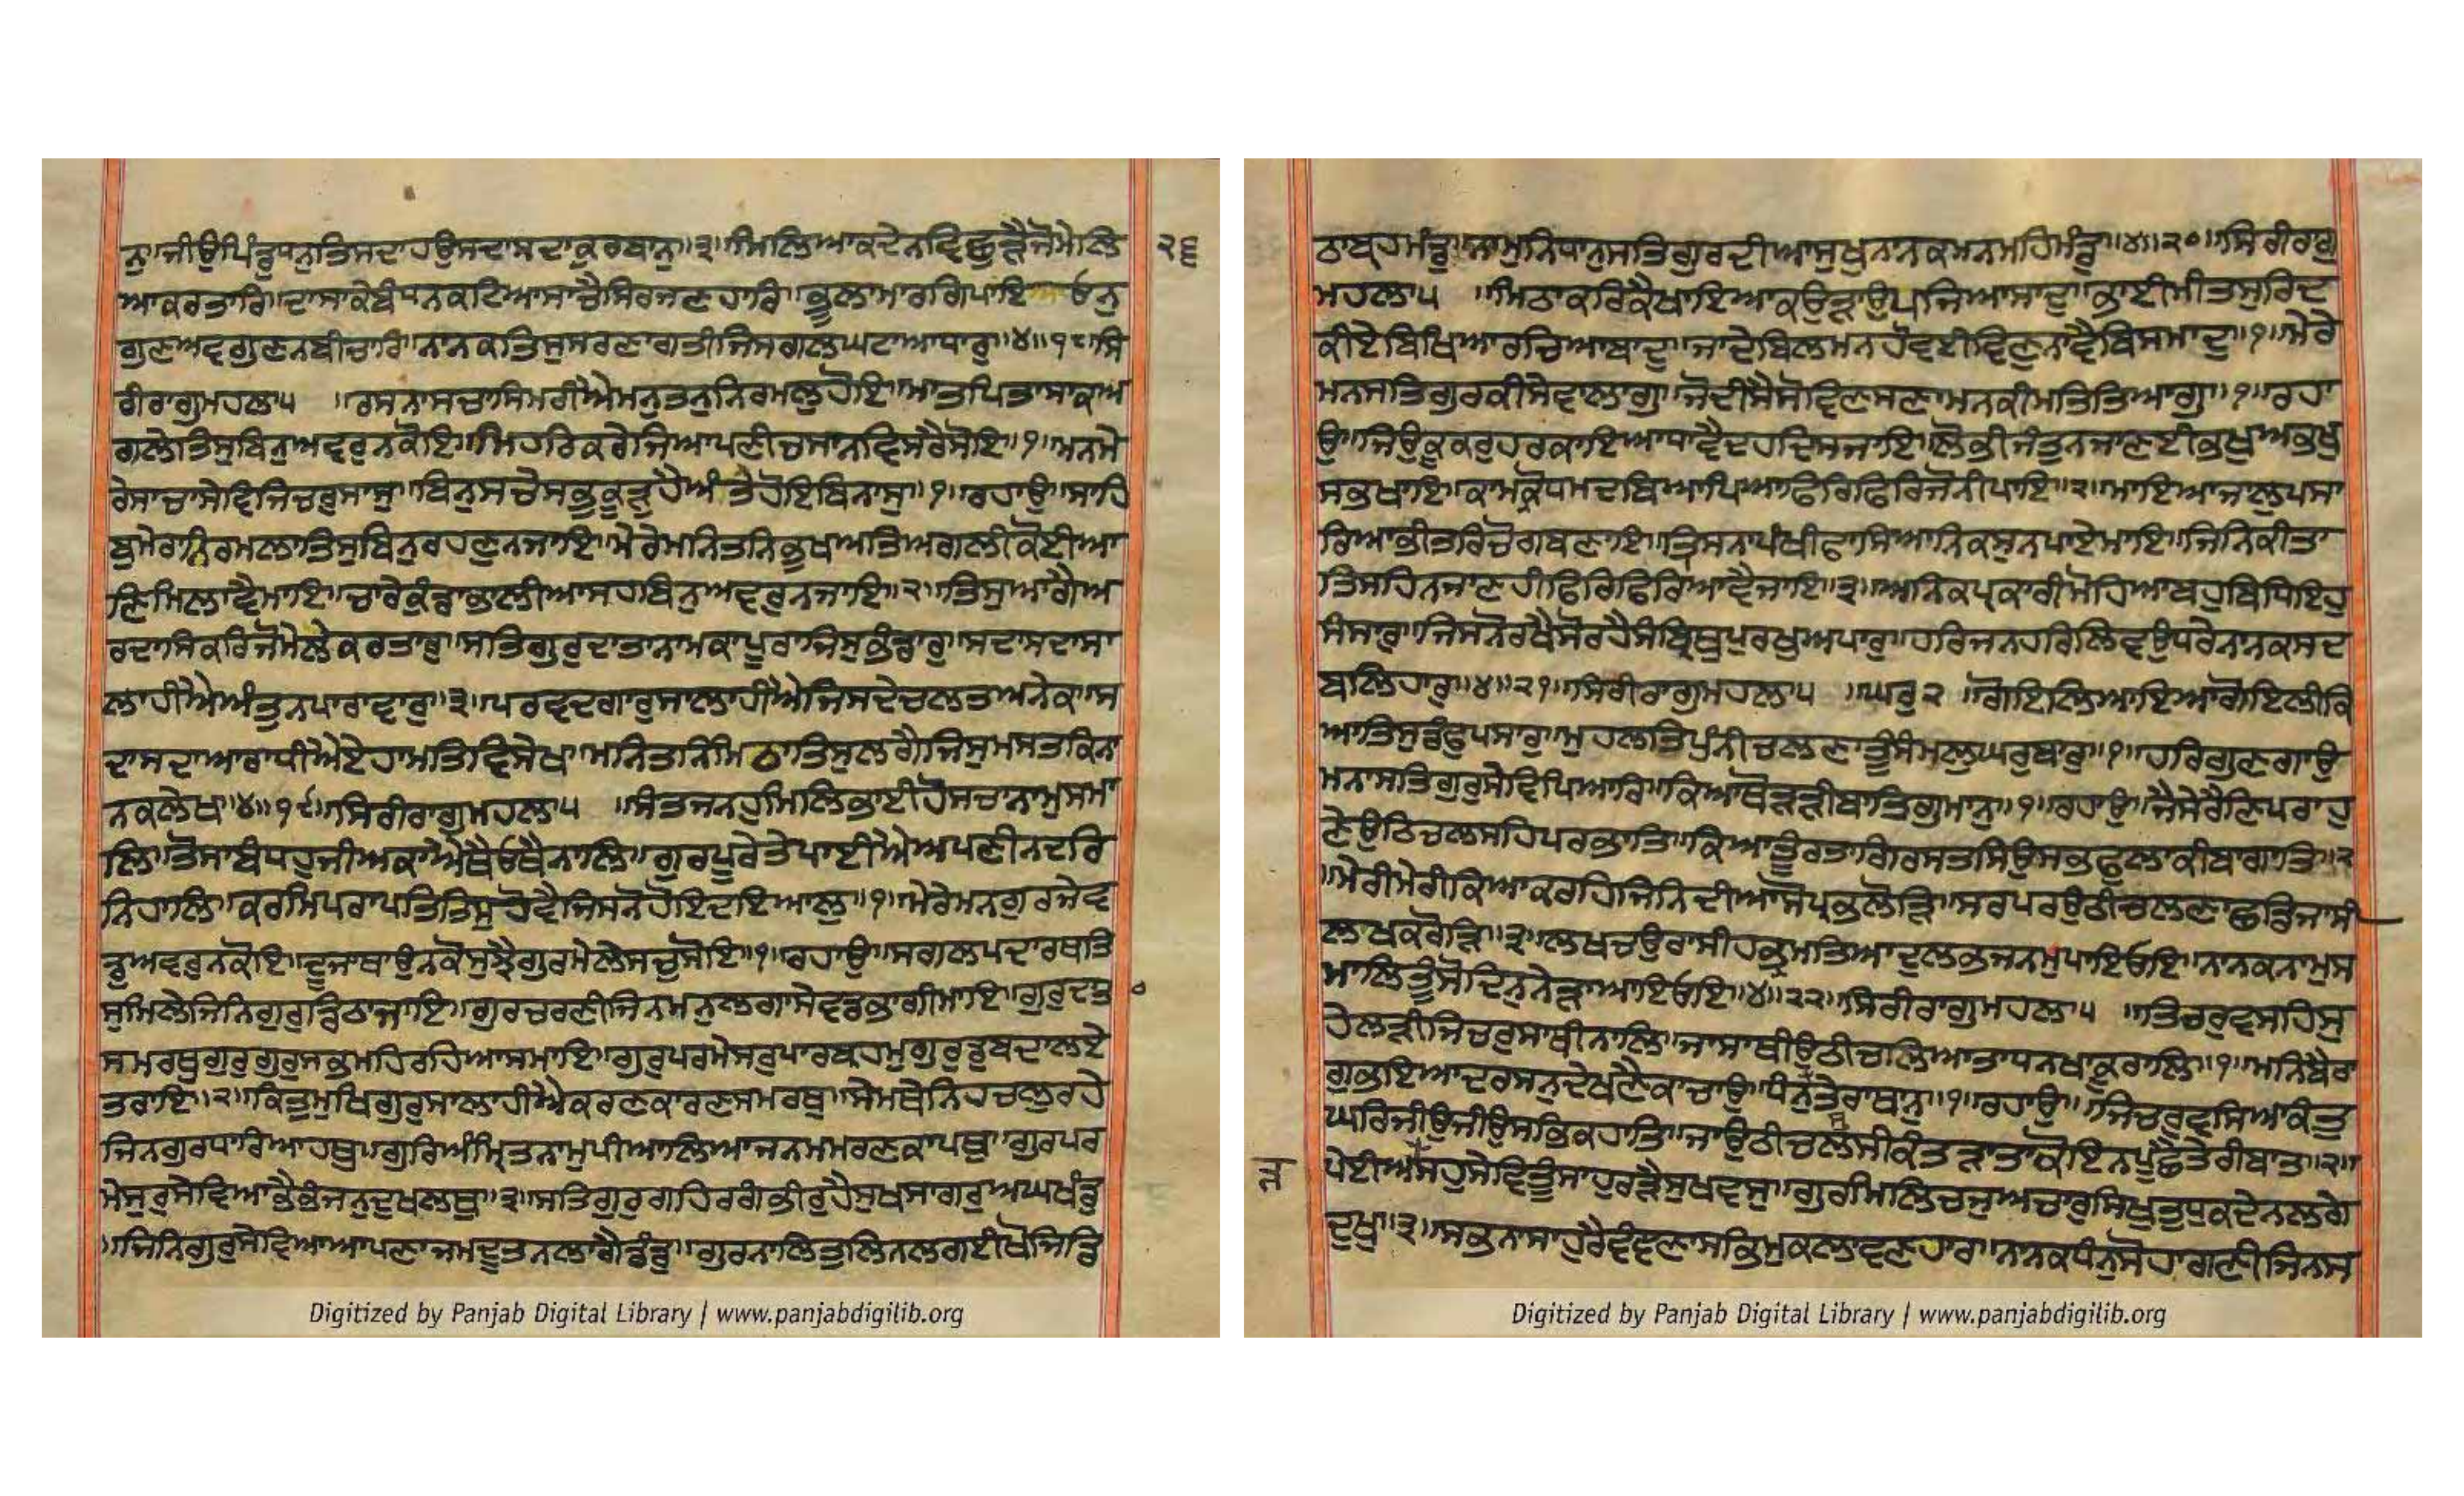 ਨੁ॥ਜੀਉਪਿੰਡੁਧਨੁਤਿਸਦਾਹਉਸਦਾਸਦਾਕੁਰਬਾਨੁ॥੩॥ਮਿਲਿਆਕਦੇਨਵਿਛੁੜੈਜੋਮੇਲਿ ੨੬
ਆਕਰਤਾਰਿ॥ਦਾਸਾਕੇਬੰਧਨਕਟਿਆਸਾਚੈਸਿਰਜਣਹਾਰਿ॥ਭੂਲਾਮਾਰਗਿਪਾਇਓਨੁ
ਗੁਣਅਵਗੁਣਨਬੀਚਾਰਿ॥ਨਾਨਕਤਿਸੁਸਰਣਾਗਤੀਜਿਸਗਲਘਟਾਆਧਾਰੁ॥੪॥੧੮॥ਸਿ
ਰੀਰਾਗੁਮਹਲਾ੫ ॥ਰਸਨਾਸਚਾਸਿਮਰੀਐਮਨੁਤਨੁਨਿਰਮਲੁਹੋਇ॥ਮਾਤਪਿਤਾਸਾਕਅ
ਗਲੇਤਿਸੁਬਿਨੁਅਵਰੁਨਕੋਇ॥ਮਿਹਰਿਕਰੇਜਿਆਪਣੀਚਸਾਨਵਿਸਰੈਸੋਇ॥੧॥ਮਨਮੇ
ਰੇਸਾਚਾਸੇਵਿਜਿਚਰੁਸਾਸੁ॥ਬਿਨੁਸਚੇਸਭਕੂੜੁਹੈਅੰਤੇਹੋਇਬਿਨਾਸੁ॥੧॥ਰਹਾਉ॥ਸਾਹਿ
ਬੁਮੇਰਾਨਿਰਮਲਾਤਿਸੁਬਿਨੁਰਹਣੁਨਜਾਇ॥ਮੇਰੈਮਨਿਤਨਿਭੁਖਅਤਿਅਗਲੀਕੋਈਆ
ਣਿਮਿਲਾਵੈਮਾਇ॥ਚਾਰੇਕੁੰਡਾਭਾਲੀਆਸਹਬਿਨੁਅਵਰੁਨਜਾਇ॥੨॥ਤਿਸੁਆਗੈਅ
ਰਦਾਸਿਕਰਿਜੋਮੇਲੇਕਰਤਾਰੁ॥ਸਤਿਗੁਰੁਦਾਤਾਨਾਮਕਾਪੂਰਾਜਿਸੁਭੰਡਾਰੁ॥ਸਦਾਸਦਾਸਾ
ਲਾਹੀਐਅੰਤੁਨਪਾਰਾਵਾਰੁ॥੩॥ਪਰਵਦਗਾਰੁਸਾਲਾਹੀਐਜਿਸਦੇਚਲਤਅਨੇਕ॥ਸ
ਦਾਸਦਾਆਰਾਧੀਐਏਹਾਮਤਿਵਿਸੇਖ॥ਮਨਿਤਨਿਮਿਠਾਤਿਸੁਲਗੈਜਿਸੁਮਸਤਕਿਨਾ
ਨਕਲੇਖ॥੪॥੧੯॥ਸਿਰੀਰਾਗੁਮਹਲਾ੫ ॥ਸੰਤਜਨਹੁਮਿਲਿਭਾਈਹੋਸਚਾਨਾਮੁਸਮਾ
ਲਿ॥ਤੋਸਾਬੰਧਹੁਜੀਅਕਾਐਥੈਓਥੈਨਾਲਿ॥ਗੁਰਪੂਰੇਤੇਪਾਈਐਅਪਣੀਨਦਰਿ
ਨਿਹਾਲਿ॥ਕਰਮਿਪਰਾਪਤਿਤਿਸੁਹੋਵੈਜਿਸਨੋਹੋਇਦਇਆਲੁ॥੧॥ਮੇਰੇਮਨਗੁਰਜੇਵ
ਡੁਅਵਰੁਨਕੋਇ॥ਦੂਜਾਥਾਉਨਕੋਸੁਝੈਗੁਰਮੇਲੇਸਚੁਸੋਇ॥੧॥ਰਹਾਉ॥ਸਗਲਪਦਾਰਥਤਿ
ਸੁਮਿਲੇਜਿਨਿਗੁਰੁਡਿਠਾਜਾਇ॥ਗੁਰਚਰਣੀਜਿਨਮਨੁਲਗਾਸੇਵਡਭਾਗੀਮਾਇ॥ਗੁਰੁਦਾਤਾ
ਸਮਰਥੁਗੁਰੁਗੁਰੁਸਭਮਹਿਰਹਿਆਸਮਾਇ॥ਗੁਰੁਪਰਮੇਸਰੁਪਾਰਬ੍ਰਹਮੁਗੁਰੁਡੁਬਦਾਲਏ
ਤਰਾਇ॥੨॥ਕਿਤੁਮੁਖਿਗੁਰੁਸਾਲਾਹੀਐਕਰਣਕਾਰਣਸਮਰਥੁ॥ਸੇਮਥੇਨਿਹਚਲੁਰਹੇ
ਜਿਨਗੁਰਧਾਰਿਆਹਥੁ॥ਗੁਰਿਅੰਮ੍ਰਿਤਨਾਮੁਪੀਆਲਿਆਜਨਮਮਰਣਕਾਪਥੁ॥ਗੁਰਪਰ
ਮੇਸੁਰੁਸੇਵਿਆਭੈਭੰਜਨੁਦੁਖਲਥੁ॥੩॥ਸਤਿਗੁਰੁਗਹਿਰਗੰਭੀਰੁਹੈਸੁਖਸਾਗਰੁਅਘਖੰਡੁ
॥ਜਿਨਿਗੁਰੁਸੇਵਿਆਆਪਣਾਜਮਦੂਤਨਲਾਗੈਡੰਡੁ॥ਗੁਰਨਾਲਿਤੁਲਿਨਲਗਈਖੋਜਿਡਿ
ਠਾਬ੍ਰਹਮੰਡੁ॥ਨਾਮੁਨਿਧਾਨੁਸਤਿਗੁਰਦੀਆਸੁਖੁਨਾਨਕਮਨਮਹਿਮੰਡੁ॥੪॥੨੦॥ਸਿਰੀਰਾਗੁ
ਮਹਲਾ੫ ॥ਮਿਠਾਕਰਿਕੈਖਾਇਆਕਉੜਾਉਪਜਿਆਸਾਦੁ॥ਭਾਈਮੀਤਸੁਰਿਦ
ਕੀਏਬਿਖਿਆਰਚਿਆਬਾਦੁ॥ਜਾਦੇਬਿਲਮਨਹੋਵਈਵਿਣੁਨਾਵੈਬਿਸਮਾਦੁ॥੧॥ਮੇਰੇ
ਮਨਸਤਿਗੁਰਕੀਸੇਵਾਲਾਗੁ॥ਜੋਦੀਸੈਸੋਵਿਣਸਣਾਮਨਕੀਮਤਿਤਿਆਗੁ॥੧॥ਰਹਾ
ਉ॥ਜਿਉਕੂਕਰੁਹਰਕਾਇਆਧਾਵੈਦਹਦਿਸਜਾਇ॥ਲੋਭੀਜੰਤੁਨਜਾਣਈਭਖੁਅਭਖੁ
ਸਭਖਾਇ॥ਕਾਮਕ੍ਰੋਧਮਦਬਿਆਪਿਆਫਿਰਿਫਿਰਿਜੋਨੀਪਾਇ॥੨॥ਮਾਇਆਜਾਲੁਪਸਾ
ਰਿਆਭੀਤਰਿਚੋਗਬਣਾਇ॥ਤ੍ਰਿਸਨਾਪੰਖੀਫਾਸਿਆਨਿਕਸੁਨਪਾਏਮਾਇ॥ਜਿਨਿਕੀਤਾ
ਤਿਸਹਿਨਜਾਣਹੀਫਿਰਿਫਿਰਿਆਵੈਜਾਇ॥੩॥ਅਨਿਕਪ੍ਰਕਾਰੀਮੋਹਿਆਬਹੁਬਿਧਿਇਹੁ
ਸੰਸਾਰੁ॥ਜਿਸਨੋਰਖੈਸੋਰਹੈਸੰਮ੍ਰਿਥੁਪੁਰਖੁਅਪਾਰੁ॥ਹਰਿਜਨਹਰਿਲਿਵਉਧਰੇਨਾਨਕਸਦ
ਬਲਿਹਾਰੁ॥੪॥੨੧॥ਸਿਰੀਰਾਗੁਮਹਲਾ੫ ॥ਘਰੁ੨ ॥ਗੋਇਲਿਆਇਆਗੋਇਲੀਕਿ
ਆਤਿਸੁਡੰਫੁਪਸਾਰੁ॥ਮੁਹਲਤਿਪੁੰਨੀਚਲਣਾਤੂੰਸੰਮਲੁਘਰਬਾਰੁ॥੧॥ਹਰਿਗੁਣਗਾਉ
ਮਨਾਸਤਿਗੁਰੁਸੇਵਿਪਿਆਰਿ॥ਕਿਆਥੋੜੜੀਬਾਤਗੁਮਾਨੁ॥੧॥ਰਹਾਉ॥ਜੈਸੇਰੈਣਿਪਰਾਹੁ
ਣੇਉਠਿਚਲਸਹਿਪਰਭਾਤਿ॥ਕਿਆਤੂੰਰਤਾਗਿਰਸਤਸਿਉਸਭਫੁਲਾਕੀਬਾਗਾਤਿ॥੨
॥ਮੇਰੀਮੇਰੀਕਿਆਕਰਹਿਜਿਨਿਦੀਆਸੋਪ੍ਰਭੁਲੋੜਿ॥ਸਰਪਰਉਠੀਚਲਣਾਛਡਿਜਾਸੀ
ਲਖਕਰੋੜਿ॥੩॥ਲਖਚਉਰਾਸੀਭ੍ਰਮਤਿਆਦੁਲਭਜਨਮੁਪਾਇਓਇ॥ਨਾਨਕਨਾਮੁਸ
ਮਾਲਿਤੂੰਸੋਦਿਨੁਨੇੜਾਆਇਓਇ॥੪॥੨੨॥ਸਿਰੀਰਾਗੁਮਹਲਾ੫ ॥ਤਿਚਰੁਵਸਹਿਸੁ
ਹੇਲੜੀਜਿਚਰੁਸਾਥੀਨਾਲਿ॥ਜਾਸਾਥੀਉਠੀਚਲਿਆਤਾਧਨਖਾਕੂਰਾਲਿ॥੧॥ਮਨਿਬੈਰਾ
ਗੁਭਇਆਦਰਸਨੁਦੇਖਣੈਕਾਚਾਉ॥ਧੰਨੁਤੇਰਾਥਾਨੁ॥੧॥ਰਹਾਉ॥ਜਿਚਰੁਵਸਿਆਕੰਤੁ
ਘਰਿਜੀਉਜੀਉਸਭਿਕਹਾਤਿ॥ਜਾਉਠੀਚਲਸੀਕੰਤੜਾਤਾਕੋਇਨਪੁਛੈਤੇਰੀਬਾਤ॥੨॥
ਪੇਈਅੜੈਸਹੁਸੇਵਿਤੂੰਸਾਹੁਰੜੈਸੁਖਵਸੁ॥ਗੁਰਮਿਲਿਚਜੁਅਚਾਰੁਸਿਖੁਤੁਧੁਕਦੇਨਲਗੈ
ਦੁਖੁ॥੩॥ਸਭਨਾਸਾਹੁਰੈਵੰਞਣਾਸਭਿਮੁਕਲਾਵਣਹਾਰ॥ਨਾਨਕਧੰਨੁਸੋਹਾਗਣੀਜਿਨਸ
ੜ
Digitized by Panjab Digital Library | www.panjabdigilib.org
Digitized by Panjab Digital Library | www.panjabdigilib.org